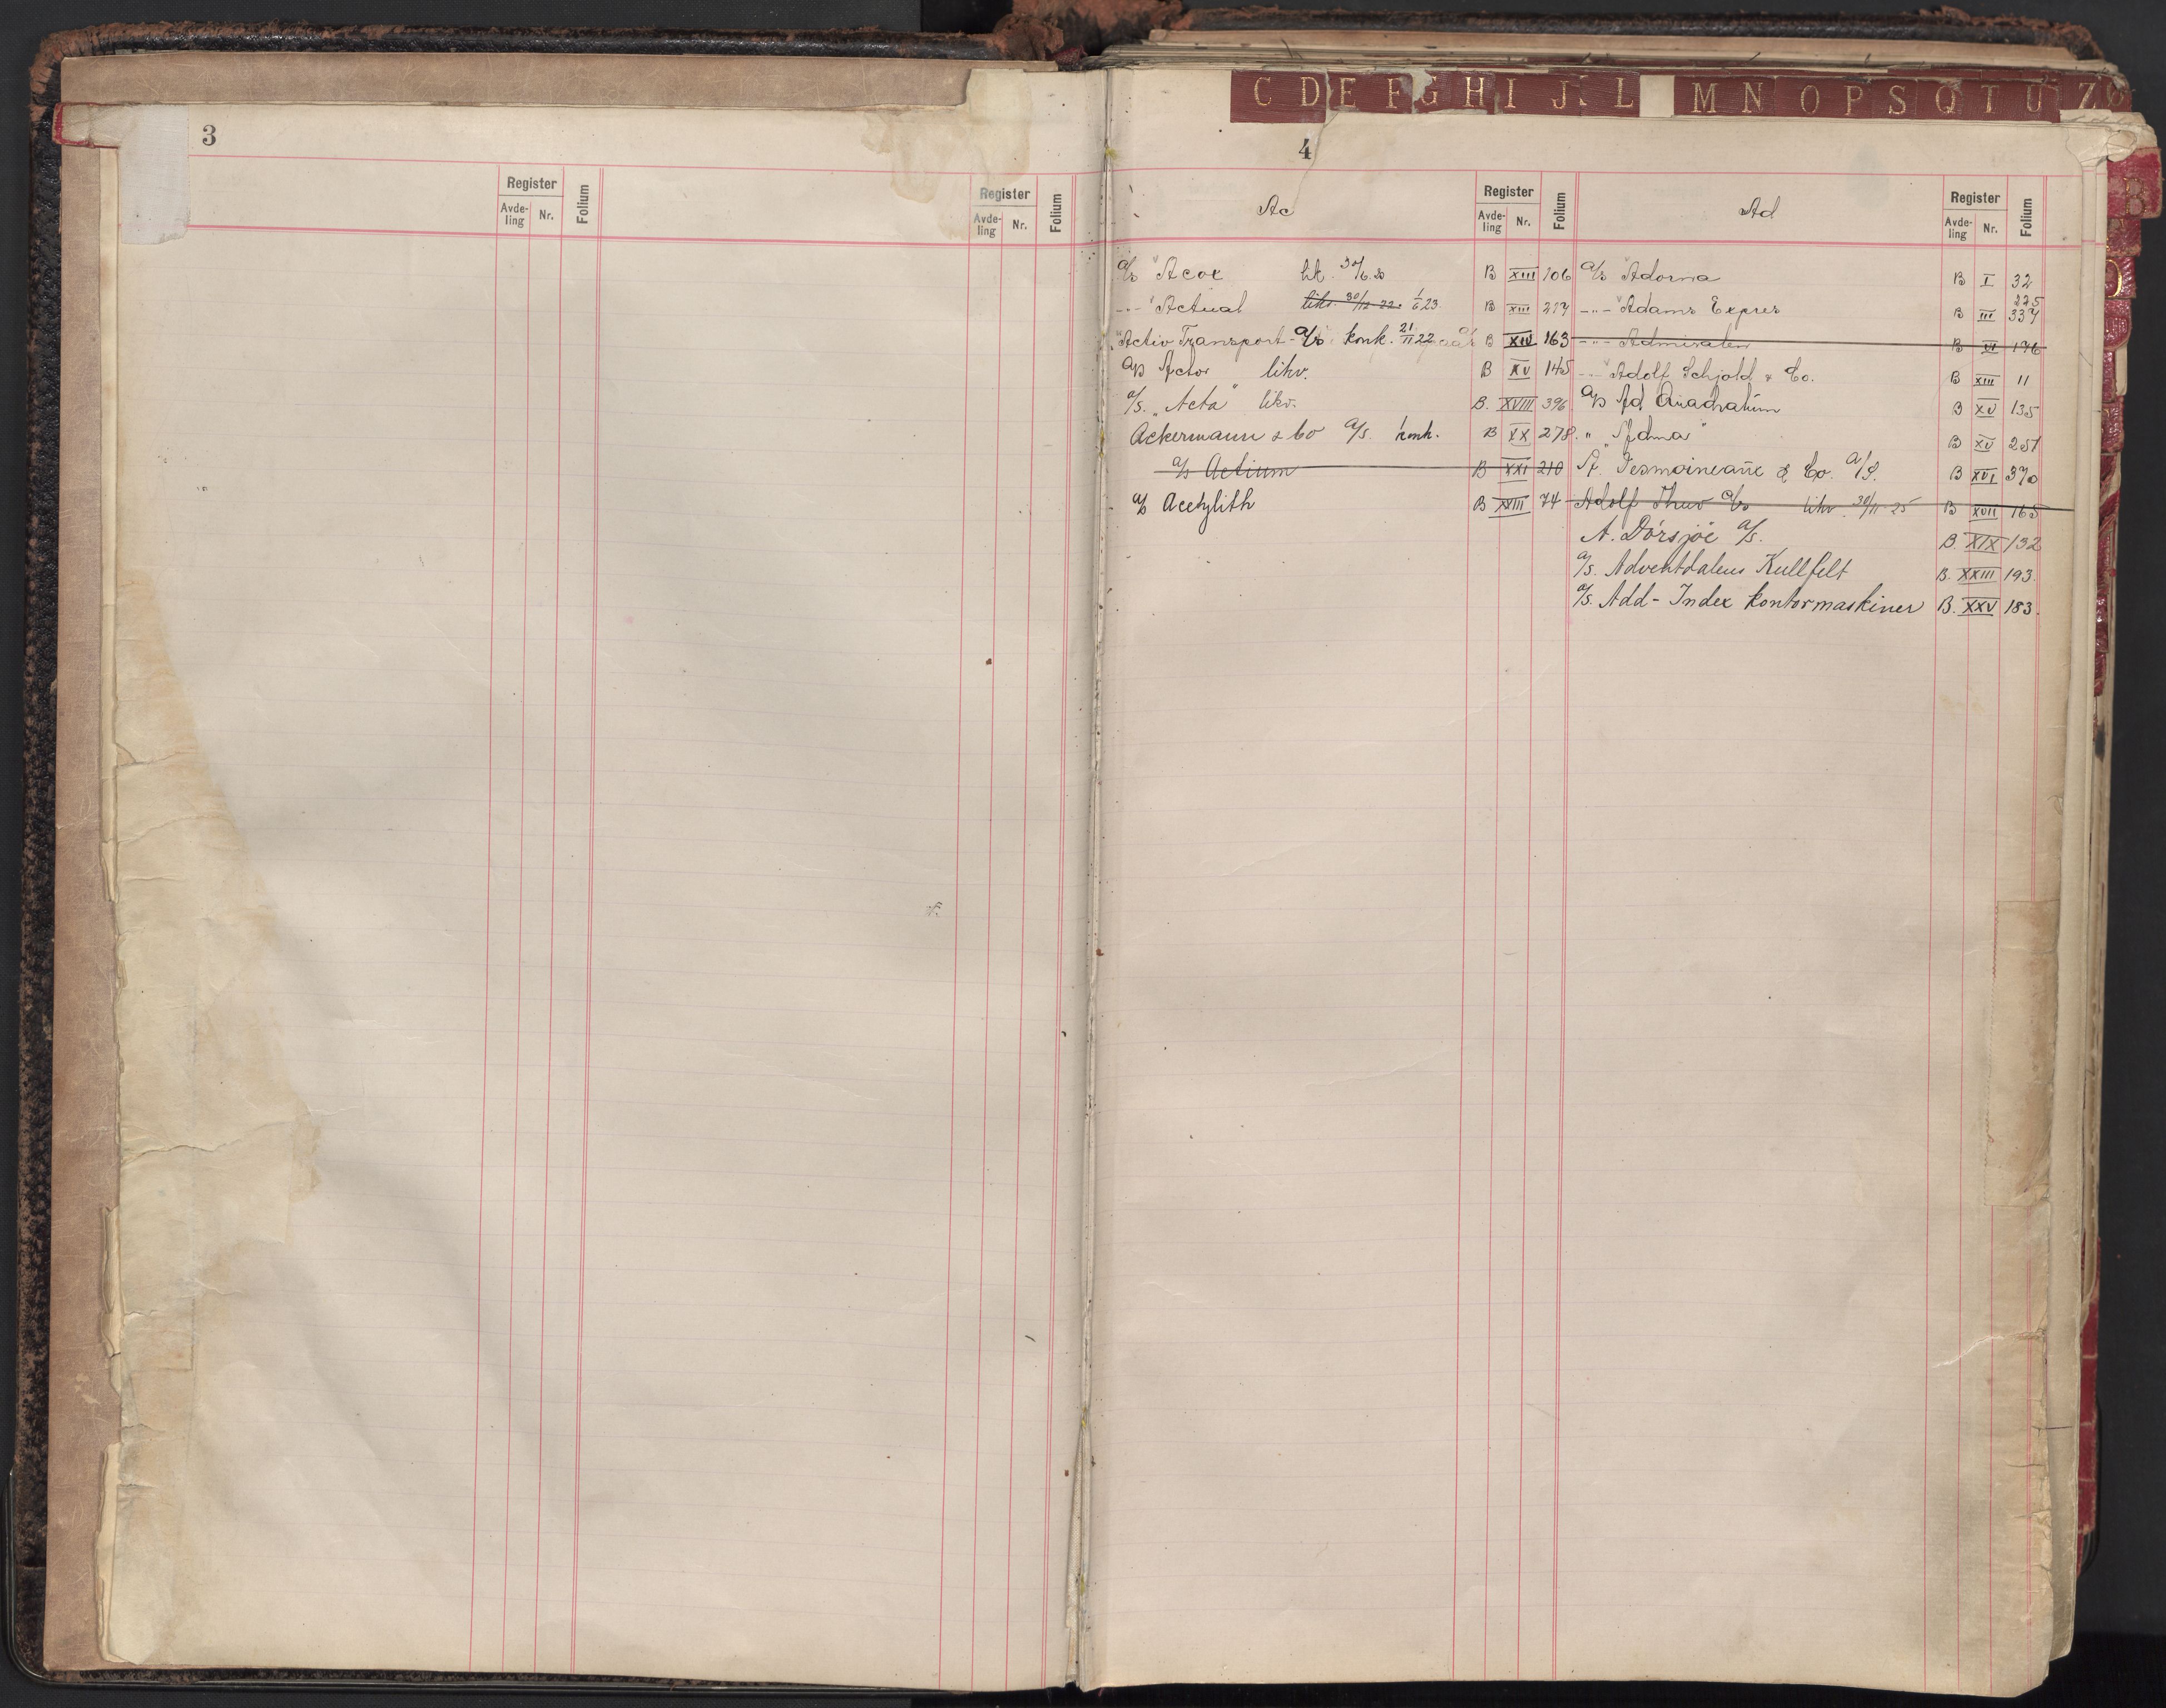 C D E F G H I J L M N O P S Q T U Z Ø
3
Register
Avde-ling Nr. Folium
Register
Avde-ling Nr. Folium
4
Ac
Register
Avde-ling Nr. Folium
Ad
Register
Avde-ling Nr. Folium
a/s "Acox 30/6.20 B XIII 106
-"- "Actual likv. 30/12 22. 1/6 23. B XIII 217
"Activ Transport - a/s konk. 21/11 22 B XIV 163
a/s Actor likv. B XV 145
a/s. "Acta" likv. B. XVIII 396
Ackermann & Co a/s. konk. B XX 278.
a/s Actium B XXI 210
a/s Acetylith B XVIII 74
a/s "Adorna B I 32
-"- "Adams Expres B III 225 337
-"- Admiralen B VI 196
-"- "Adolf Schjold & Co. B XIII 11
a/s Ad Quadratum B XV 135
" "Adma" B XV 251
A. & Co. A/S. B XVI 370
Adolf Thuv a/s likv. 30/11-25 B XVII 165
A. Dörsjöe a/s. B. XIX 132
a/s. Adventdalens Kullfelt B. XXIII 193.
a/s. Add-Index kontormaskiner B. XXV 183.